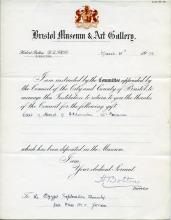 Bristol Museum & Art Gallery.
DIRECTOR
March
I am instructed by the Committee appointed by
the Council of the City and County of Bristol to
manage this Institution to return you the thanks
of the Council for the following gift
Cast of Head of Alexander
which has been deposited in the Museum.
I am
Your obedient Servant
H Bolton
Director
To the Egypt Exploration Society